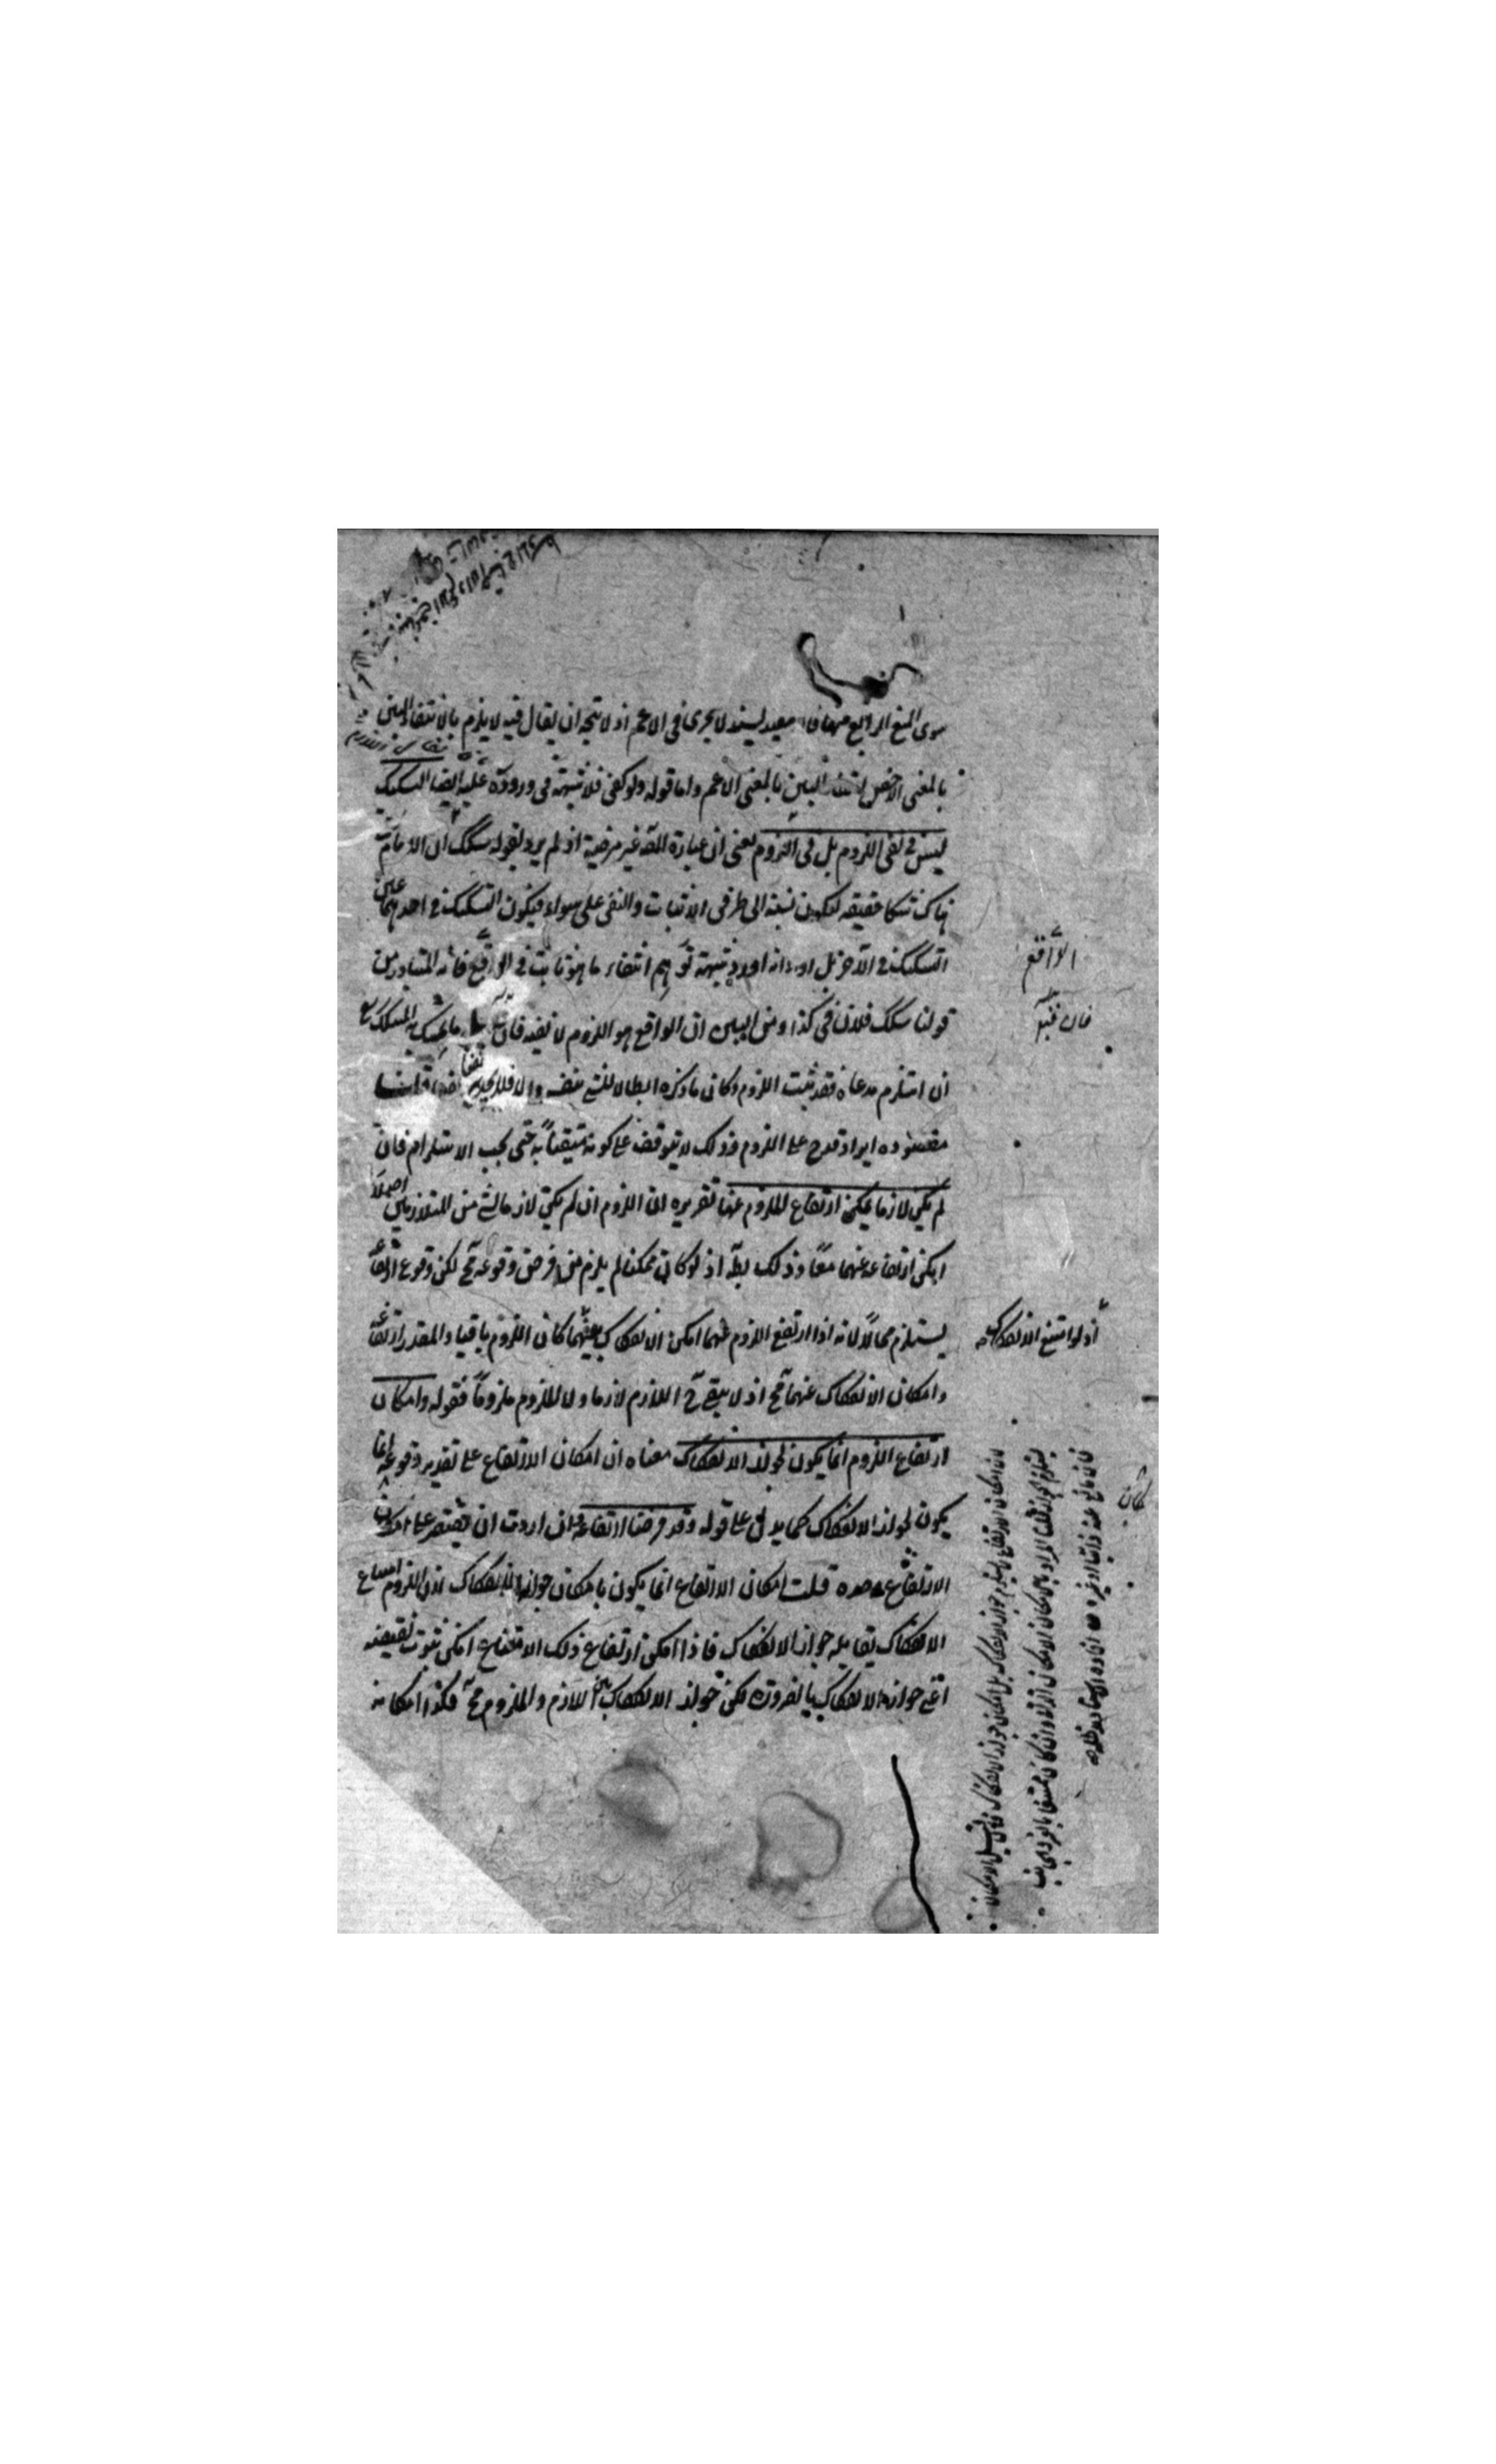 سوى المنع الرابع منها فانه معيد لسند لا يجرى فى الاعم اذ لا يتجه ان يقال فيه لا يلزم بالانتفاء البين
بالمعنى الاخص انتفاء البين بالمعنى الاعم واما قوله ولو كفى فلا شبهة فى وروده عليه ايضا التشكيك
ليس فى نفى اللزوم بل فى اللزوم يعنى ان عبارة المصه غير مرضية اذ لم يرد بقوله شكك ان الامام
هناك شكا حقيقة ليكون نسبته الى طرفى الاثبات والنفى على سواء فيكون التشكيك فى احدهما عين
التشكيك فى الآخر بل اراد انه اورد شبهة توهم انتفاء ما هو ثابت فى الواقع فانه المتبادر من
قولنا شكك فلان فى كذا ومن البين ان الواقع هو اللزوم لا نفيه فان ما تمسك به المشكك
ان استلزم مدعاه فقد ثبت اللزوم وكان ما ذكره ابطالا للشئ بنفسه والا فلا يجديه نفعا قلنا
مقصوده ايراد قدح على اللزوم وذلك لا يتوقف على كونه متيقنا به حتى يجب الاستلزام فان
لم يكن لازما يمكن ارتفاع اللزوم عنها تقريره ان اللزوم ان لم يكن لازما لشئ من المتلازمين اصلا
امكن ارتفاعه عنهما معا وذلك بط اذ لو كان ممكنا لم يلزم من فرض وقوعه مح لكن وقوع ارتفاعه
يستلزم محالا لانه اذا ارتفع اللزوم عنهما امكن الانفكاك بينهما كان اللزوم باقيا والمقدر ارتفاعه
وامكان الانفكاك عنهما مح اذ لا يبقى ح اللازم لازما ولا الملزوم ملزوما فقوله وامكان
ارتفاع اللزوم انما يكون لجواز الانفكاك معناه ان امكان الارتفاع على تقدير وقوعه انما
يكون لجواز الانفكاك كما يدل على قوله وقد فرضنا ارتفاعه وان اردت ان تقتصر على امكان
الارتفاع وحده قلت امكان الارتفاع انما يكون بامكان جواز الانفكاك لان اللزوم امتناع
الانفكاك يقابله جواز الانفكاك فاذا امكن ارتفاع ذلك الامتناع امكن ثبوت نقيضه
اعنى جواز الانفكاك بالضرورة لكن جواز الانفكاك بين اللازم والملزوم مح فكذا امكانه
الواقع
فان قيل
اذ لو امتنع الانفكاك
لان امكان الارتفاع لا يستلزم جواز الانفكاك بل امكان جواز الانفكاك